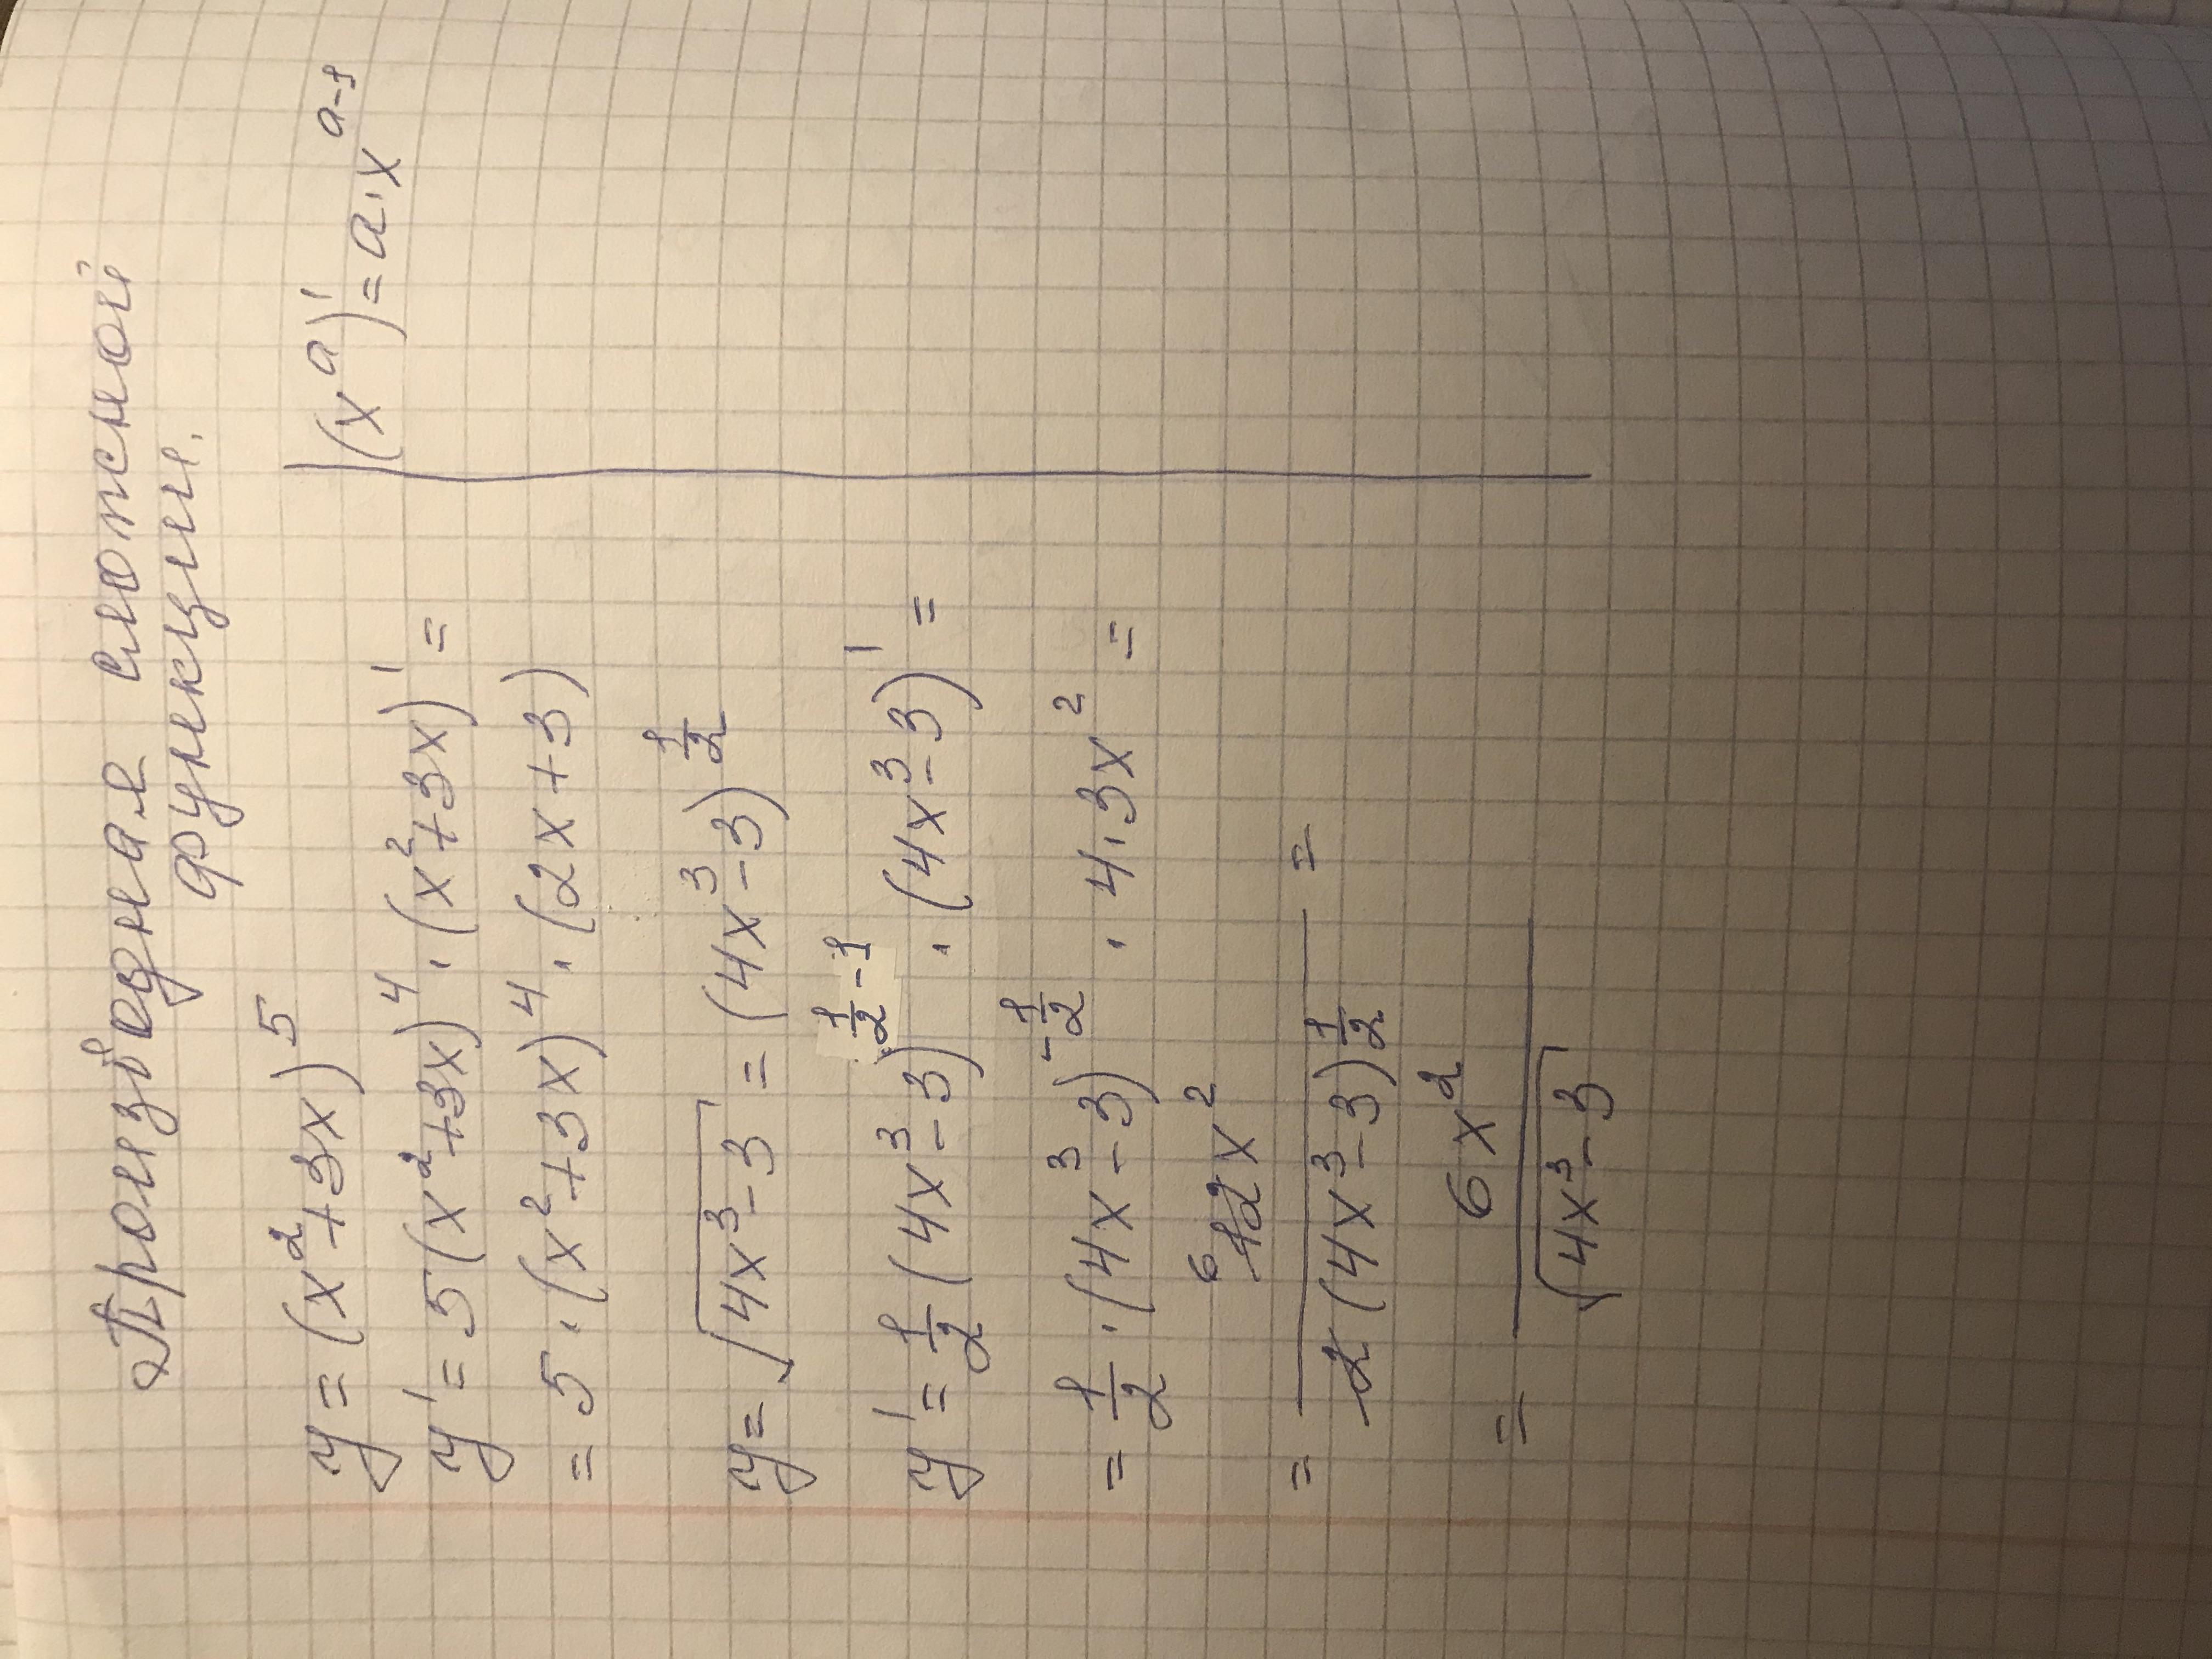 Производная сложной
функции.
y = (x²+3x)⁵
(xᵃ)' = a·xᵃ⁻¹
y' = 5(x²+3x)⁴·(x²+3x)' =
= 5·(x²+3x)⁴·(2x+3)
y = √(4x³-3) = (4x³-3)^(1/2)
y' = 1/2 (4x³-3)^(1/2 - 1)·(4x³-3)' =
= 1/2·(4x³-3)^(-1/2)·4·3x² =
6
= 12x² / 2(4x³-3)^(1/2) =
= 6x² / √(4x³-3)